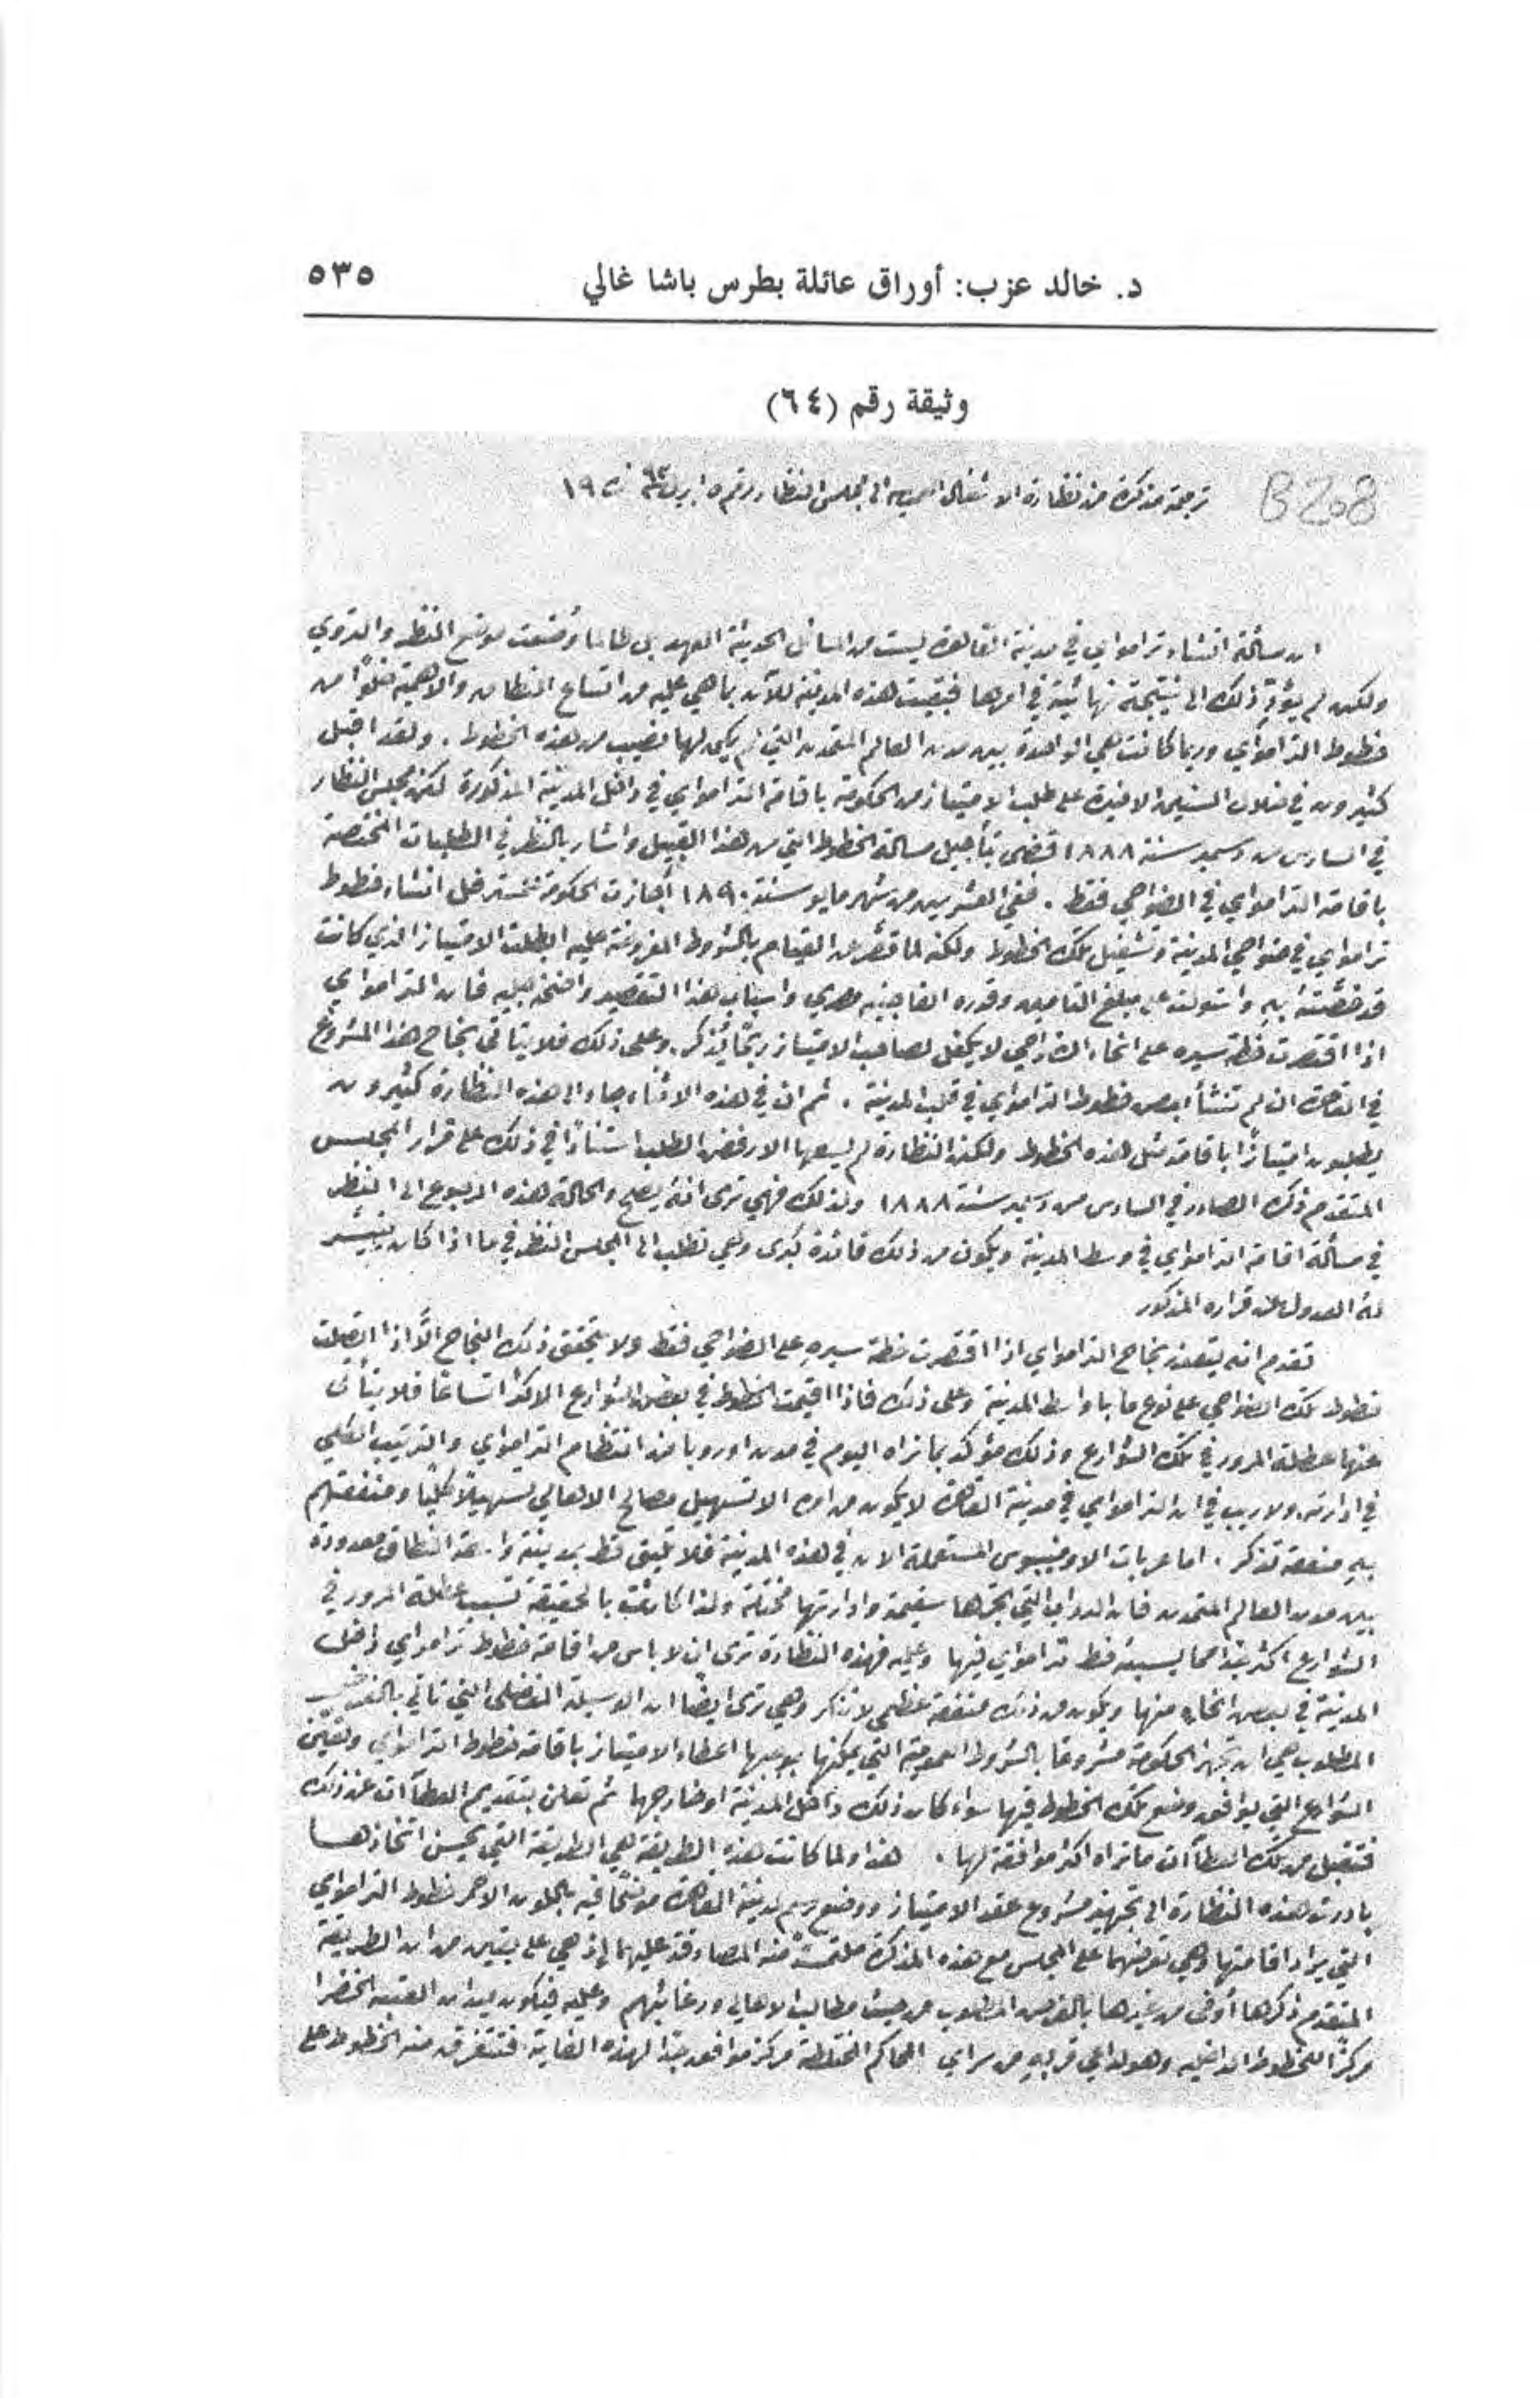 د. خالد عزب: أوراق عائلة بطرس باشا غالي ٥٣٥
وثيقة رقم (٦٤)
B208
ترجمة مذكرة من نظارة الاشغال العموميه الى مجلس النظار رقم ٥ ابريل ١٩
ان مسألة انشاء تراموای في مدينة القاهرة ليست من المسائل الحديثة العهد بل طالما وُضعت موضع النظر والتروي
ولكن لم يؤدِّ ذلك الى نتيجة نهائية في امرها فبقيت هذه المدينة للآن بما هي عليه من اتساع النطاق والاهمية خلوًا من
خطوط التراموای وربما كانت هي الواحدة بين مدن العالم المتمدن التي لم يكن لها نصيب من هذه الخطوط . ولقد اقبل
كثيرون في خلال السنين الاخيرة على طلب الامتياز من الحكومة باقامة التراموای في داخل المدينة المذكورة لكن مجلس النظار
في السادس من دسمبر سنة ١٨٨٨ قضى بتأجيل مسالة الخطوط التي من هذا القبيل واشار بالنظر في الطلبات المختصة
باقامة التراموای في الضواحي فقط . ففي العشرين من شهر مايو سنة ١٨٩٠ أجازت الحكومة انشاء خطوط
تراموای في ضواحي المدينة وتشغيل تلك الخطوط ولكنه لما قصّر عن القيام بالشروط المفروضة عليه ابطلت الامتياز الذي كانت
قد خصّته به واستولت على مبلغ التامين وقدره الفا جنيه مصري واسباب هذا التقصير واضحة جليه فان التراموای
اذا اقتصرت خطة سيره على انحاء الضواحي لا يكفل لصاحب الامتياز ربحًا يُذكر. وعلى ذلك فلا يتأتى نجاح هذا المشروع
في القاهرة ان لم تنشأ بعض خطوط التراموای في قلب المدينة . ثم ان في هذه الاثناء جاء الى هذه النظارة كثيرون
يطلبون امتيازًا باقامة مثل هذه الخطوط ولكن النظارة لم يسعها الا رفض الطلب استنادًا في ذلك على قرار المجلس
المتقدم ذكره الصادر في السادس من دسمبر سنة ١٨٨٨ ولذلك فهي ترى انه يصح والحالة هذه الرجوع الى النظر
في مسألة اقامة التراموای في وسط المدينة ويكون من ذلك فائدة كبرى وهي تطلب الى المجلس النظر في ما اذا كان يتيسر
له العدول عن قراره المذكور
تقدم انه يتعذر نجاح التراموای اذا اقتصرت خطة سيرهِ على الضواحي فقط ولا يتحقق ذلك النجاح الّا اذا اتصلت
خطوط تلك الضواحي على نوع ما باواسط المدينة وعلى ذلك فاذا اقيمت الخطوط في بعض الشوارع الاكثر اتساعًا فلا يتأتى
عنها عطلة المرور في تلك الشوارع وذلك مؤكد بما نراه اليوم في مدن اوروبا من انتظام التراموای والترتيب الكلي
في ادارته. ولا ريب في ان التراموای في مدينة القاهرة لا يكون من امره الا تسهيل مصالح الاهالي تسهيلًا كليًا ومنفعتهم
به منفعة تذكر . اما عربات الاومنيبوس المستعملة الان في هذه المدينة فلا تليق قط بمدينة واسعة النطاق معدودة
بين مدن العالم المتمدن فان الدواب التي تجرّها سقيمة وادارتها مختلة ولذا كانت بالحقيقة تسبب عطلة المرور في
الشوارع اكثر جدا مما يسببه خط تراموای فيها وعليه فهذه النظارة ترى ان لا باس من اقامة خطوط تراموای داخل
المدينة في بعض انحاء منها ويكون من ذلك منفعة عظمى لا تنكر وهي ترى ايضًا ان الوسيلة الفضلى التي تاتي بالغرض
المطلوب هي ان تجهز الحكومة مشروعا بالشروط العمومية التي يمكنها بموجبها اعطاء الامتياز باقامة خطوط التراموای وتعيّن
الشوارع التي يوافق وضع تلك الخطوط فيها سواء كان ذلك داخل المدينة او خارجها ثم تعلن بتقديم العطآات عن ذلك
فتقبل من تلك العطآات ما تراه اكثر موافقة لها . هذا ولما كانت هذه الطريقة هي الطريقة التي يحسن اتخاذها
بادرت هذه النظارة الى تجهيز مشروع عقد الامتياز ووضع رسم لمدينة القاهرة موضّحًا فيه باللون الاحمر خطوط التراموای
التي يراد اقامتها وهي تعرضهما على المجلس مع هذه المذكرة ملتمسةً منه المصادقة عليهما اذ هي على يقين من ان الطريقة
المتقدم ذكرها أوفى من غيرها بالغرض المطلوب من حيث مطالب الاهالي ورغائبهم وعليه فيكون ميدان العتبه الخضرا
مركزًا للخطوط الداخليه وهو لداعي قربه من سراي المحاكم المختلطة مركز موافق جدًا لهذه الغاية فتتفرق منه الخطوط على